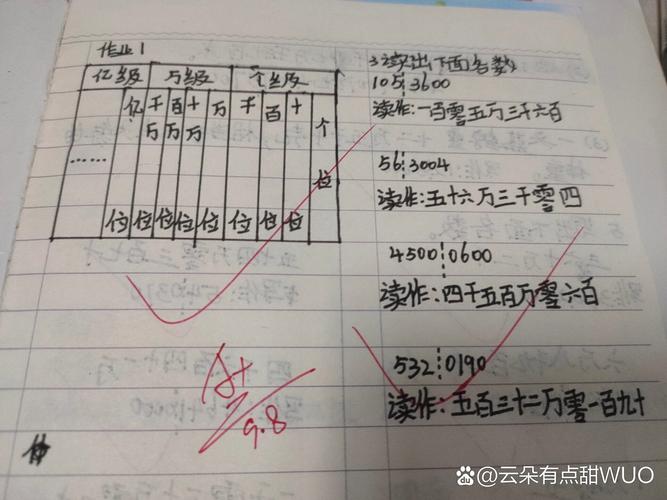 作业1
亿级 万级 个级
…… 亿位 千万位 百万位 十万位 万位 千位 百位 十位 个位
3、读出下面各数
105┆3600
读作:一百零五万三千六百
56┆3004
读作:五十六万三千零四
4500┆0600
读作:四千五百万零六百
532┆0190
读作:五百三十二万零一百九十
A+
9.8
@云朵有点甜WUO